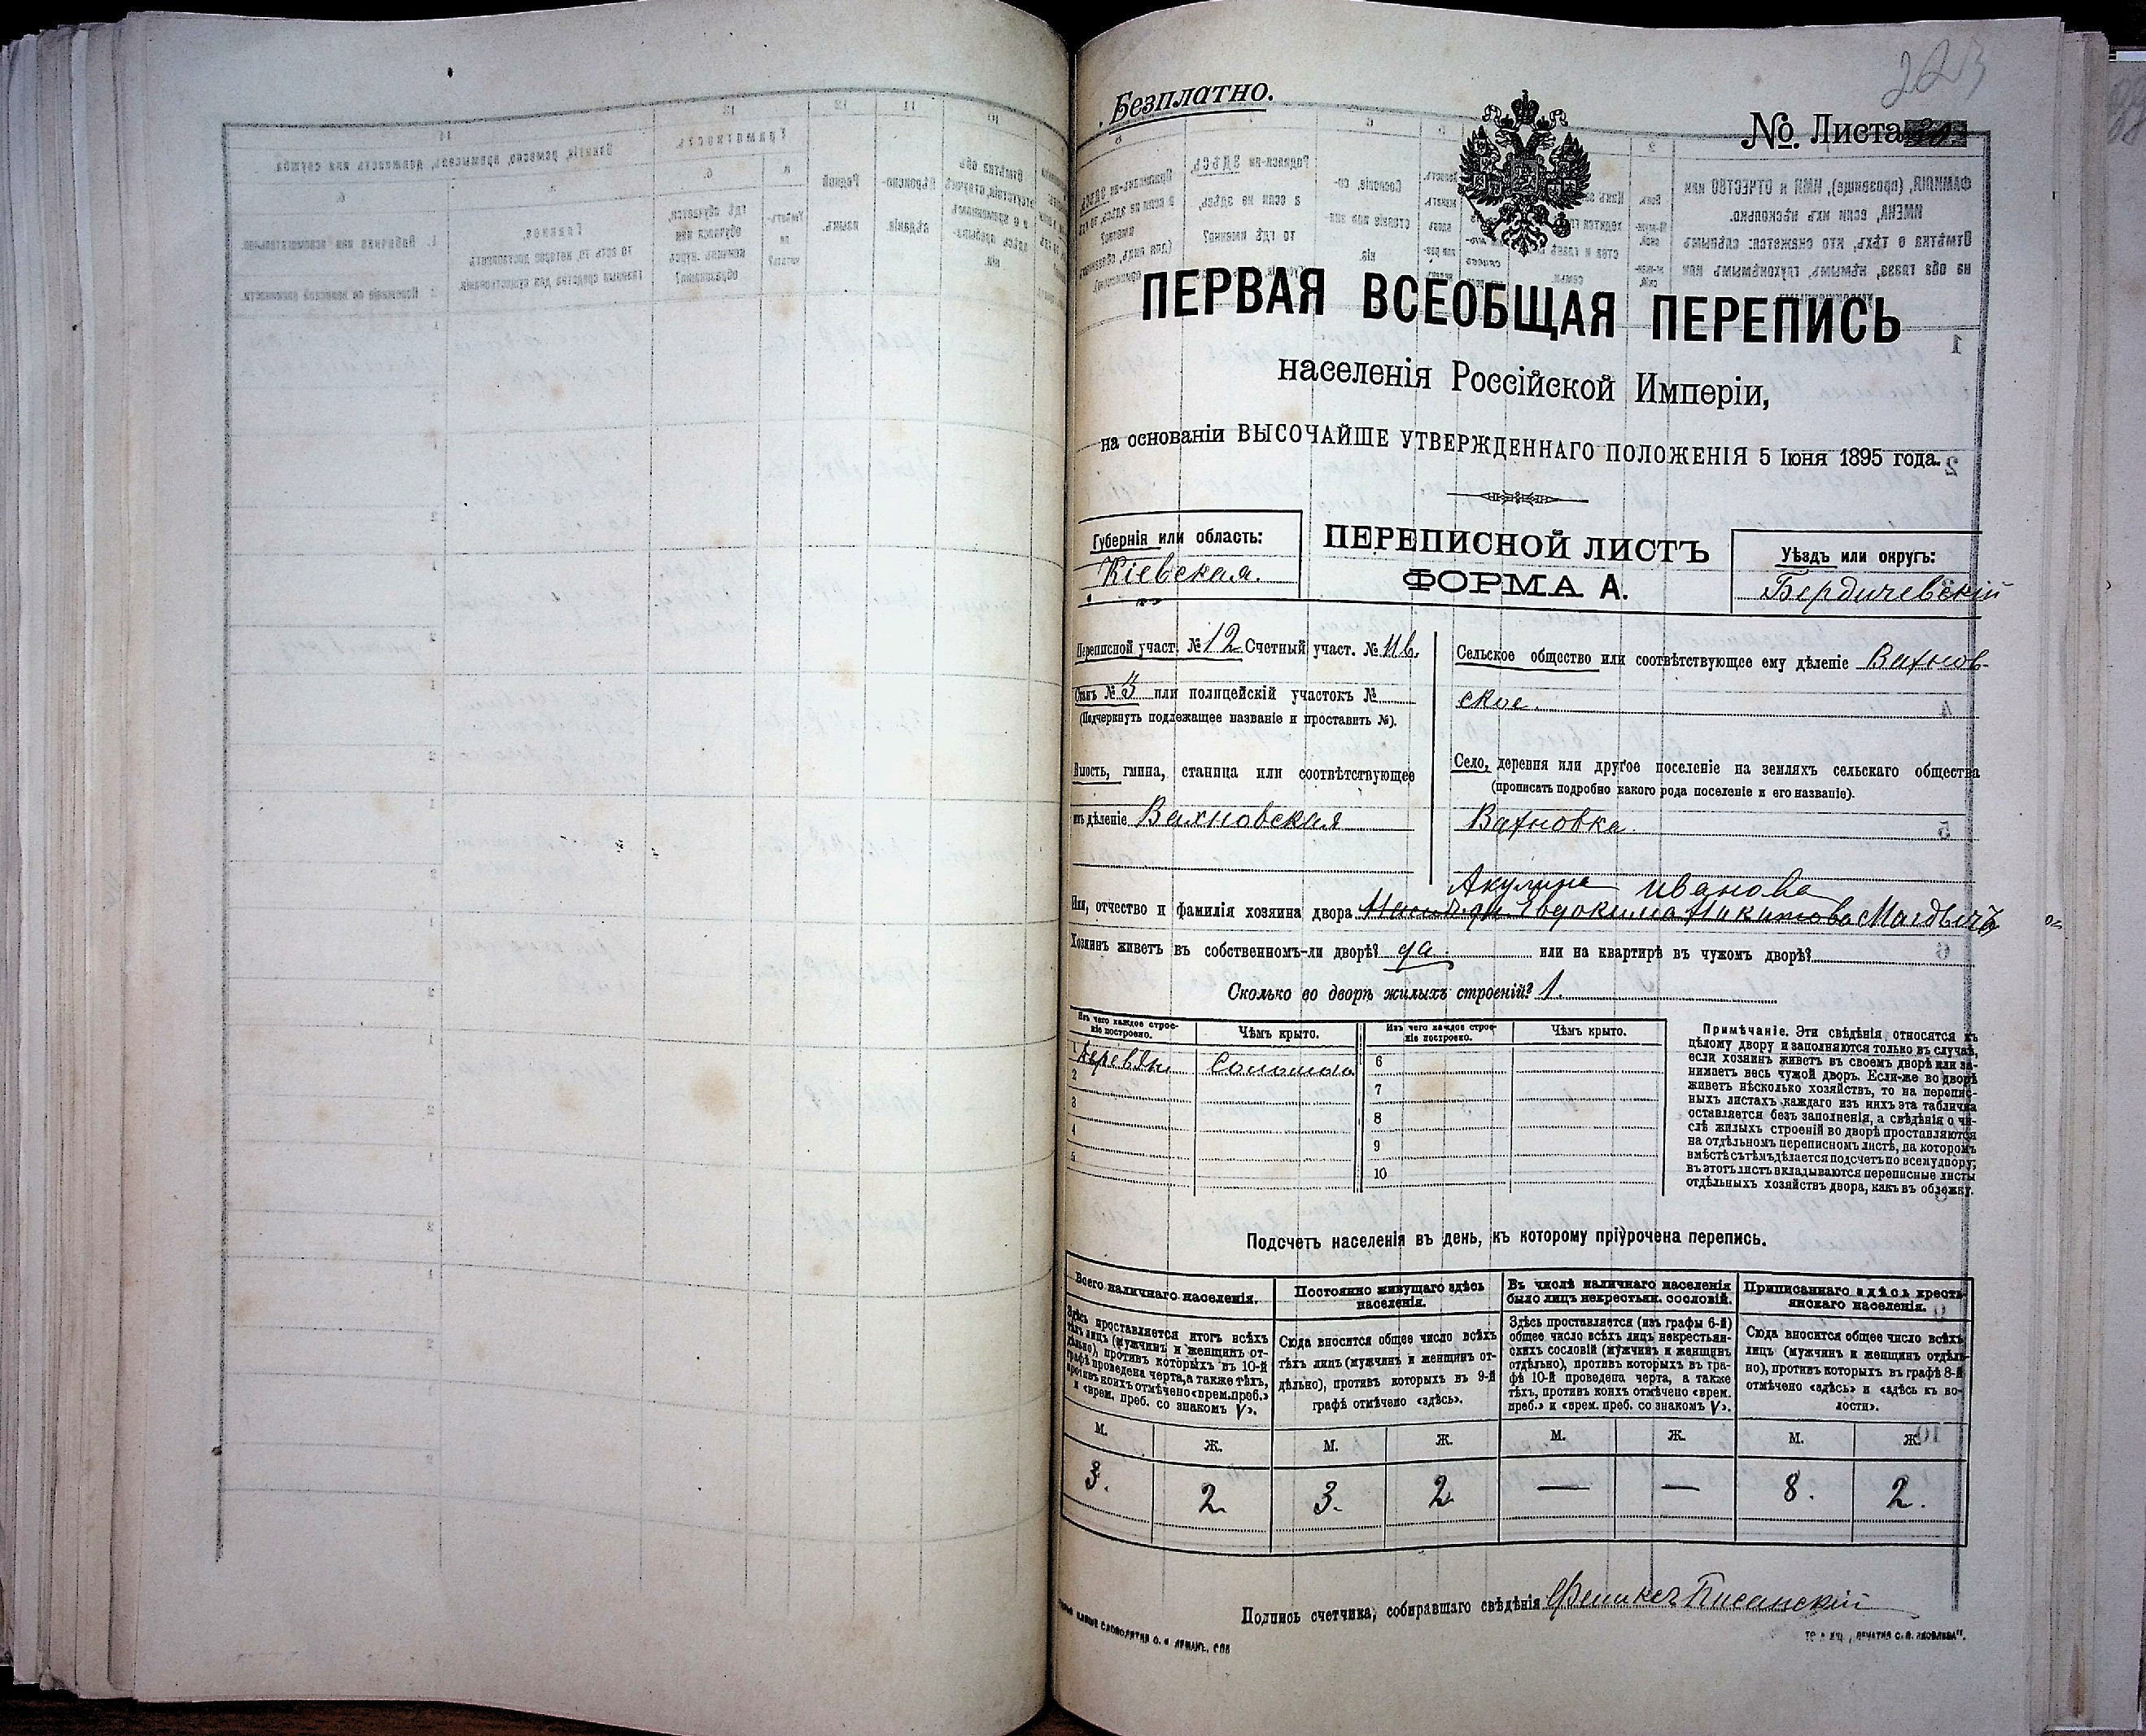 223
Безплатно.
№. Листа
ПЕРВАЯ ВСЕОБЩАЯ ПЕРЕПИСЬ
населенія Россійской Имперіи,
на основаніи ВЫСОЧАЙШЕ УТВЕРЖДЕННАГО ПОЛОЖЕНІЯ 5 Іюня 1895 года.
Губернія или область:
Кіевская.
ПЕРЕПИСНОЙ ЛИСТЪ
ФОРМА А.
Уѣздъ или округъ:
Бердичевскій
Переписной участ. № 12 Счетный участ. №
Станъ № 3 или полицейскій участокъ №
(Подчеркнуть подлежащее названіе и проставить №).
Волость, гмина, станица или соотвѣтствующее
имъ дѣленіе Вахновская
Сельское общество или соотвѣтствующее ему дѣленіе Вахнов-
ское.
Село, деревня или другое поселеніе на земляхъ сельскаго общества
(прописать подробно какого рода поселеніе и его названіе).
Вахновка.
Акулина Иванова
Имя, отчество и фамилія хозяина двора Евдокима Никитова
Хозяинъ живетъ въ собственномъ-ли дворѣ? да или на квартирѣ въ чужомъ дворѣ?
Сколько во дворѣ жилыхъ строеній? 1.
Изъ чего каждое строе-
ніе построено.
Чѣмъ крыто.
Изъ чего каждое строе-
ніе построено.
Чѣмъ крыто.
1 Деревян. Соломою 6
2 7
3 8
4 9
5 10
Примѣчаніе. Эти свѣдѣнія относятся къ
цѣлому двору и заполняются только въ случаѣ,
если хозяинъ живетъ въ своемъ дворѣ или за-
нимаетъ весь чужой дворъ. Если-же во дворѣ
живетъ нѣсколько хозяйствъ, то на перепис-
ныхъ листахъ каждаго изъ нихъ эта табличка
оставляется безъ заполненія, а свѣдѣнія о чи-
слѣ жилыхъ строеній во дворѣ проставляются
на отдѣльномъ переписномъ листѣ, на которомъ
вмѣстѣ съ тѣмъ дѣлается подсчетъ по всему двору;
въ этотъ листъ вкладываются переписные листы
отдѣльныхъ хозяйствъ двора, какъ въ обложку.
Подсчетъ населенія въ день, къ которому пріурочена перепись.
Всего наличнаго населенія.
Здѣсь проставляется итогъ всѣхъ
тѣхъ лицъ (мужчинъ и женщинъ от-
дѣльно), противъ которыхъ въ 10-й
графѣ проведена черта, а также тѣхъ,
противъ коихъ отмѣчено «врем. преб.»
и «врем. преб. со знакомъ V».
Постоянно живущаго здѣсь
населенія.
Сюда вносится общее число всѣхъ
тѣхъ лицъ (мужчинъ и женщинъ от-
дѣльно), противъ которыхъ въ 9-й
графѣ отмѣчено «здѣсь».
Въ числѣ наличнаго населенія
было лицъ некрестьян. сословій.
Здѣсь проставляется (изъ графы 6-й)
общее число всѣхъ лицъ некрестьян-
скихъ сословій (мужчинъ и женщинъ
отдѣльно), противъ которыхъ въ гра-
фѣ 10-й проведена черта, а также
тѣхъ, противъ коихъ отмѣчено «врем.
преб.» и «врем. преб. со знакомъ V».
Приписаннаго здѣсь кресть-
янскаго населенія.
Сюда вносится общее число всѣхъ
лицъ (мужчинъ и женщинъ отдѣль-
но), противъ которыхъ въ графѣ 8-й
отмѣчено «здѣсь» и «здѣсь къ во-
лости».
М. Ж. М. Ж. М. Ж. М. Ж.
3. 2. 3. 2 — — 8. 2.
Подпись счетчика, собиравшаго свѣдѣнія Феликсъ Писанскій